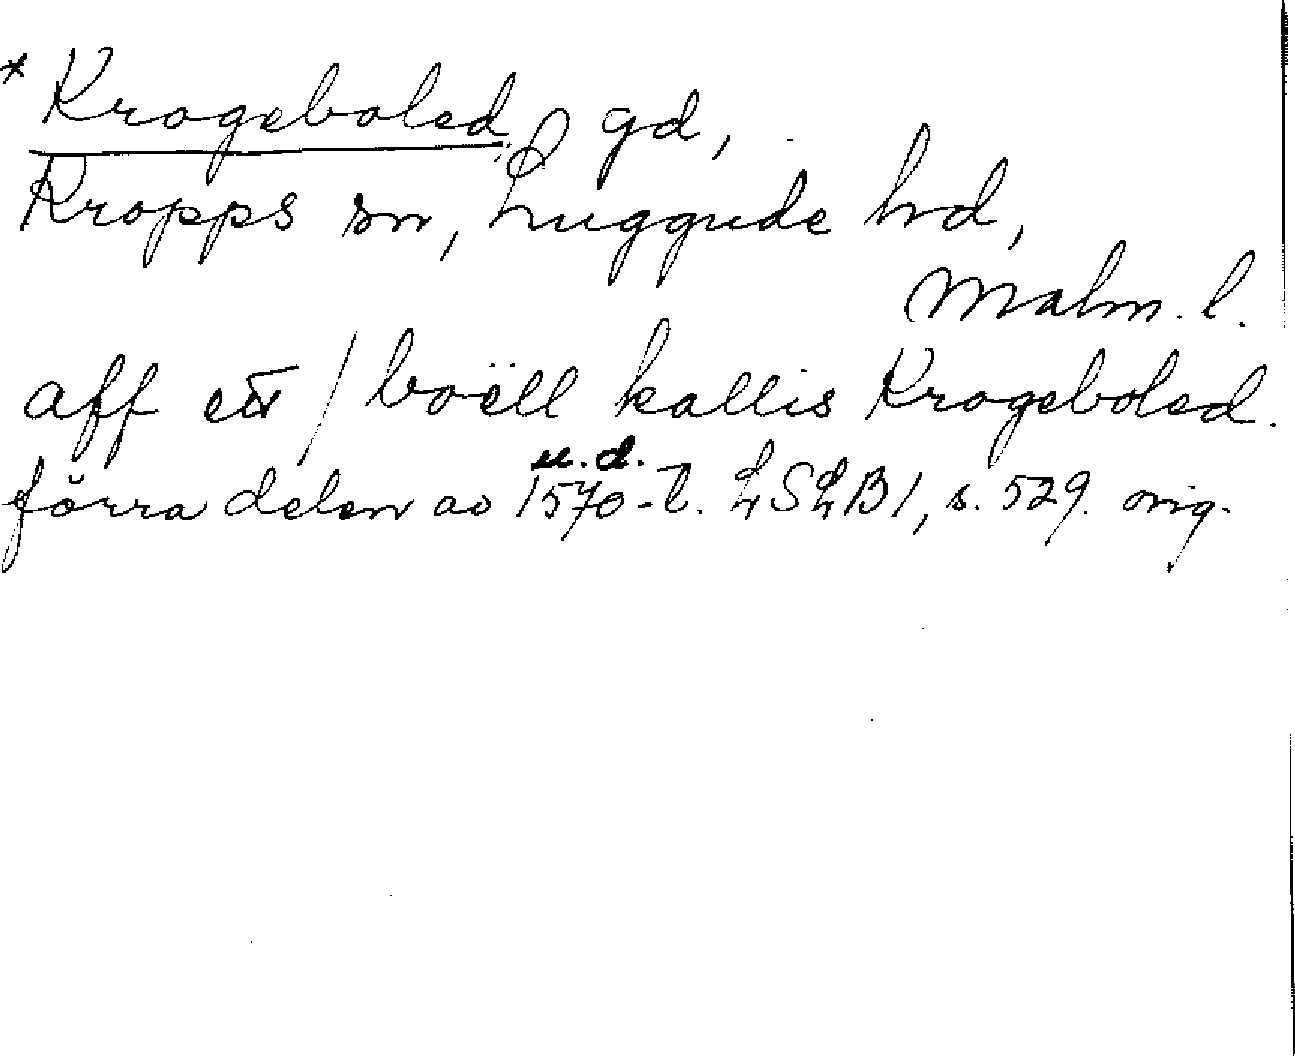 * Krogeboled, gd,
Kropps sn, Luggude hd,
Malm. l.
aff ett / boëll kallis Krogeboled.
u. d.
förra delen av 1570-t. LSLB 1, s. 529. orig.